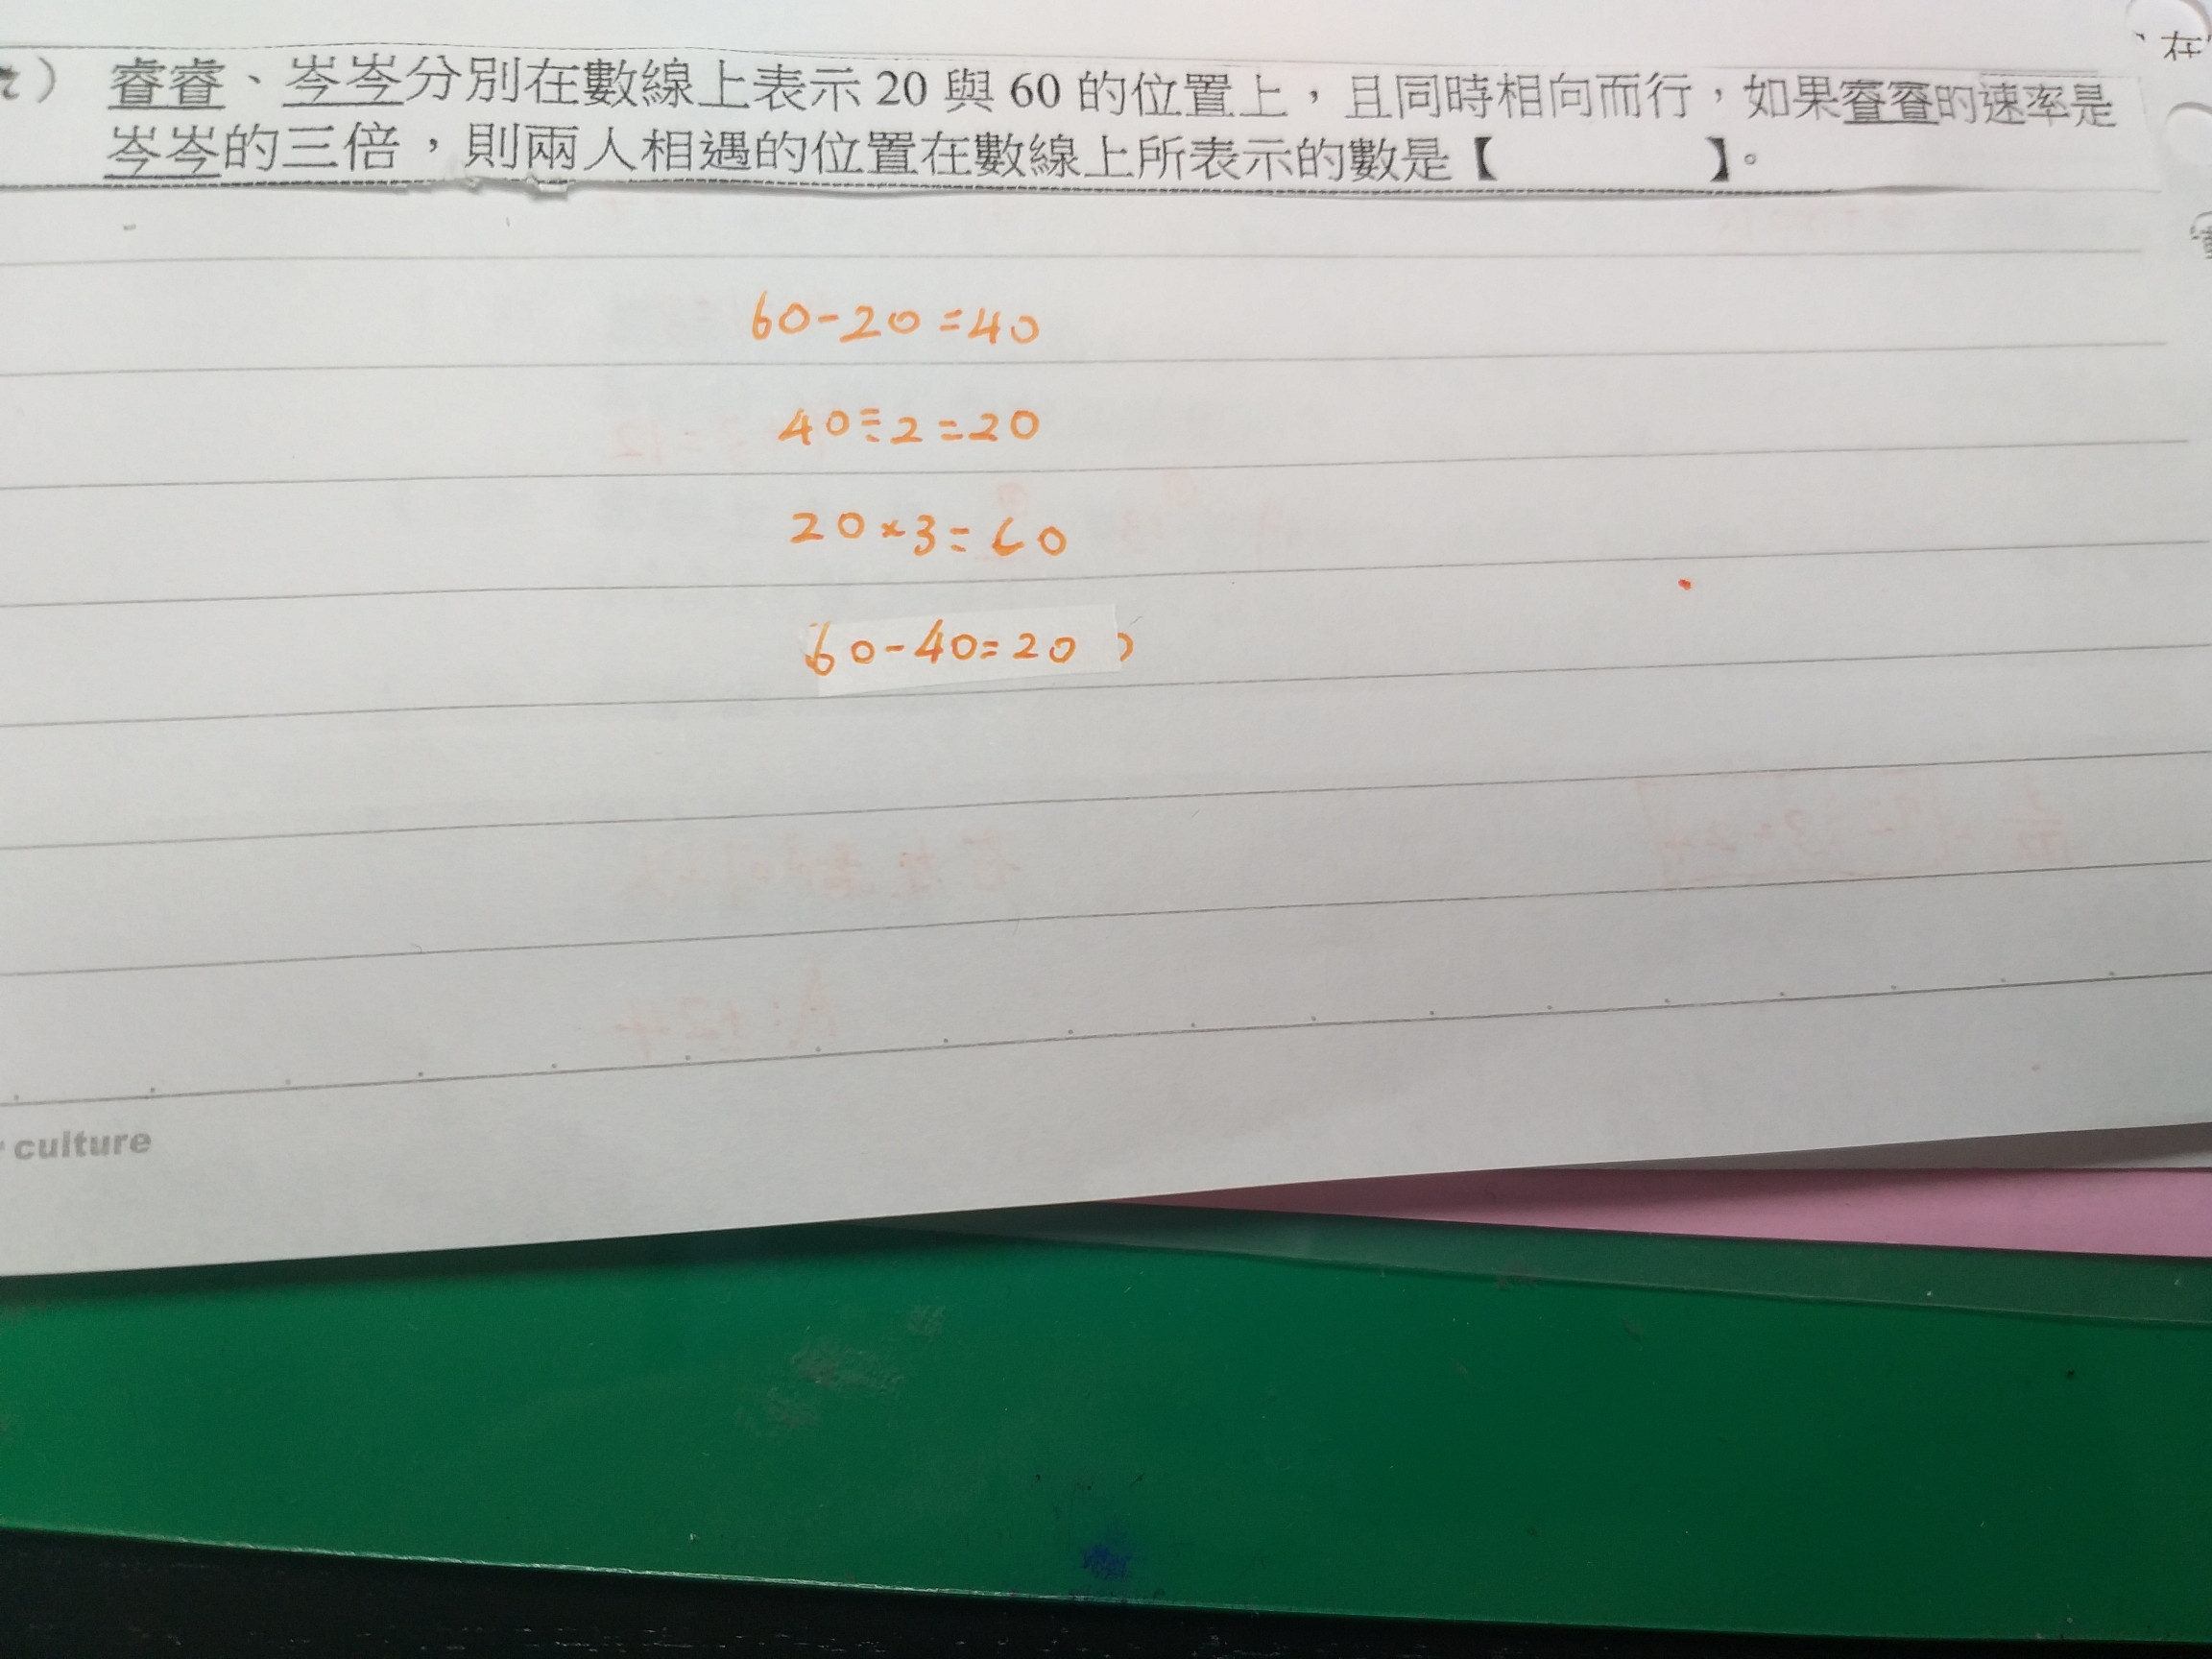 ) 睿睿、岑岑分別在數線上表示 20 與 60 的位置上，且同時相向而行，如果睿睿的速率是
岑岑的三倍，則兩人相遇的位置在數線上所表示的數是【 】。
在
60-20=40
40÷2=20
20×3=60
60-40=20
culture